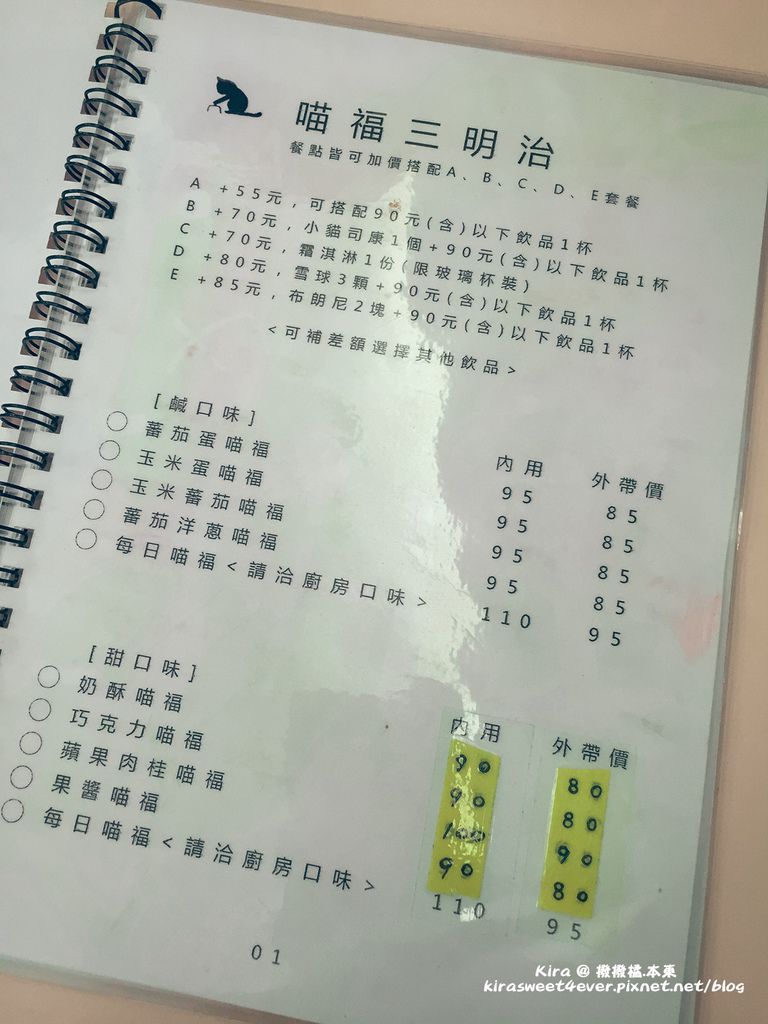 喵福三明治
餐點皆可加價搭配A、B、C、D、E套餐
A +55元，可搭配90元(含)以下飲品1杯
B +70元，小貓司康1個+90元(含)以下飲品1杯
C +70元，霜淇淋1份(限玻璃杯裝)
D +80元，雪球3顆+90元(含)以下飲品1杯
E +85元，布朗尼2塊+90元(含)以下飲品1杯
<可補差額選擇其他飲品>
[鹹口味] 內用 外帶價
蕃茄蛋喵福 95 85
玉米蛋喵福 95 85
玉米蕃茄喵福 95 85
蕃茄洋蔥喵福 95 85
每日喵福<請洽廚房口味> 110 95
[甜口味] 內用 外帶價
奶酥喵福 90 80
巧克力喵福 90 80
蘋果肉桂喵福 100 90
果醬喵福 90 80
每日喵福<請洽廚房口味> 110 95
01
Kira @ 撥撥橘.本東
kirasweet4ever.pixnet.net/blog